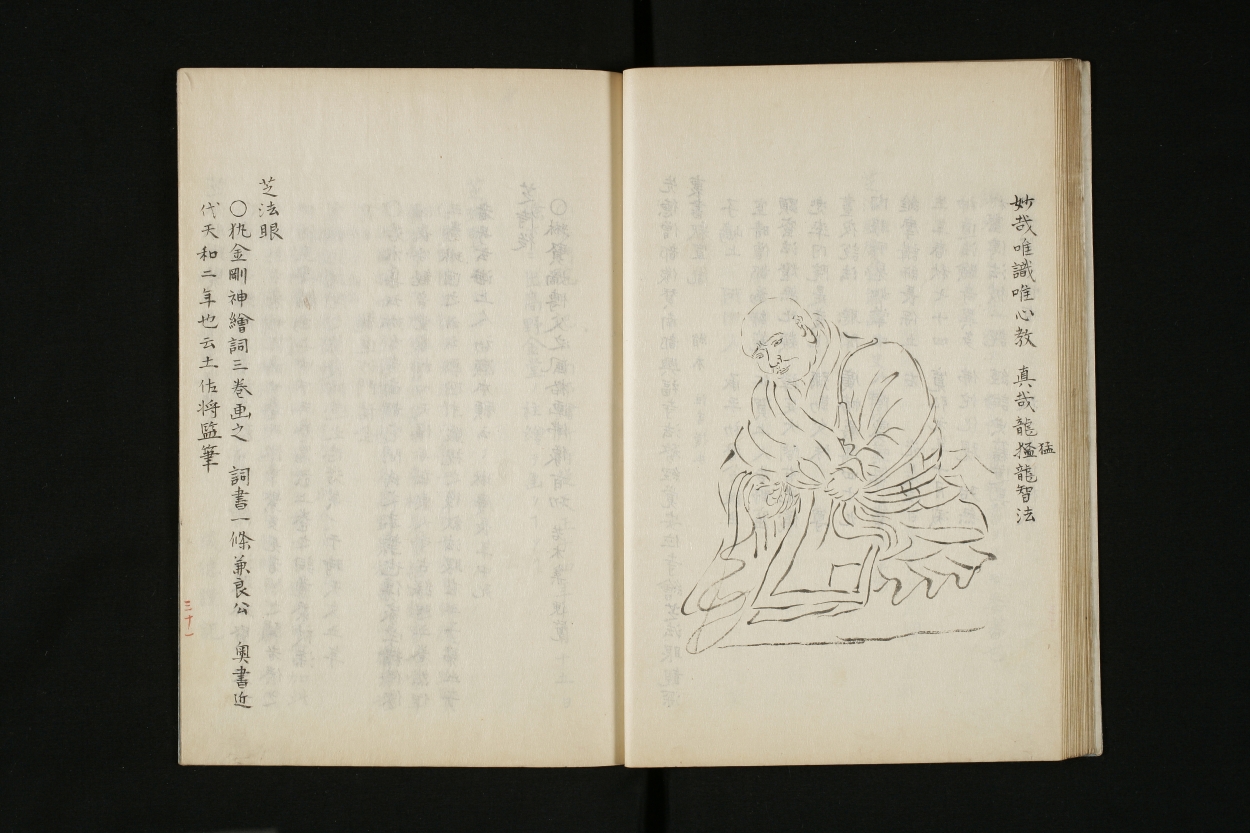 妙哉唯識唯心教 真哉龍猛龍智法
猛
芝法眼
〇執金剛神繪詞三巻画之 詞書一條兼良公 奥書近
代天和二年也云土佐将監筆
三十一